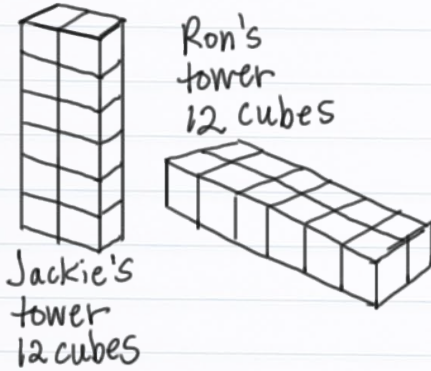 Ron's
tower
12 cubes
Jackie's
tower
12 cubes